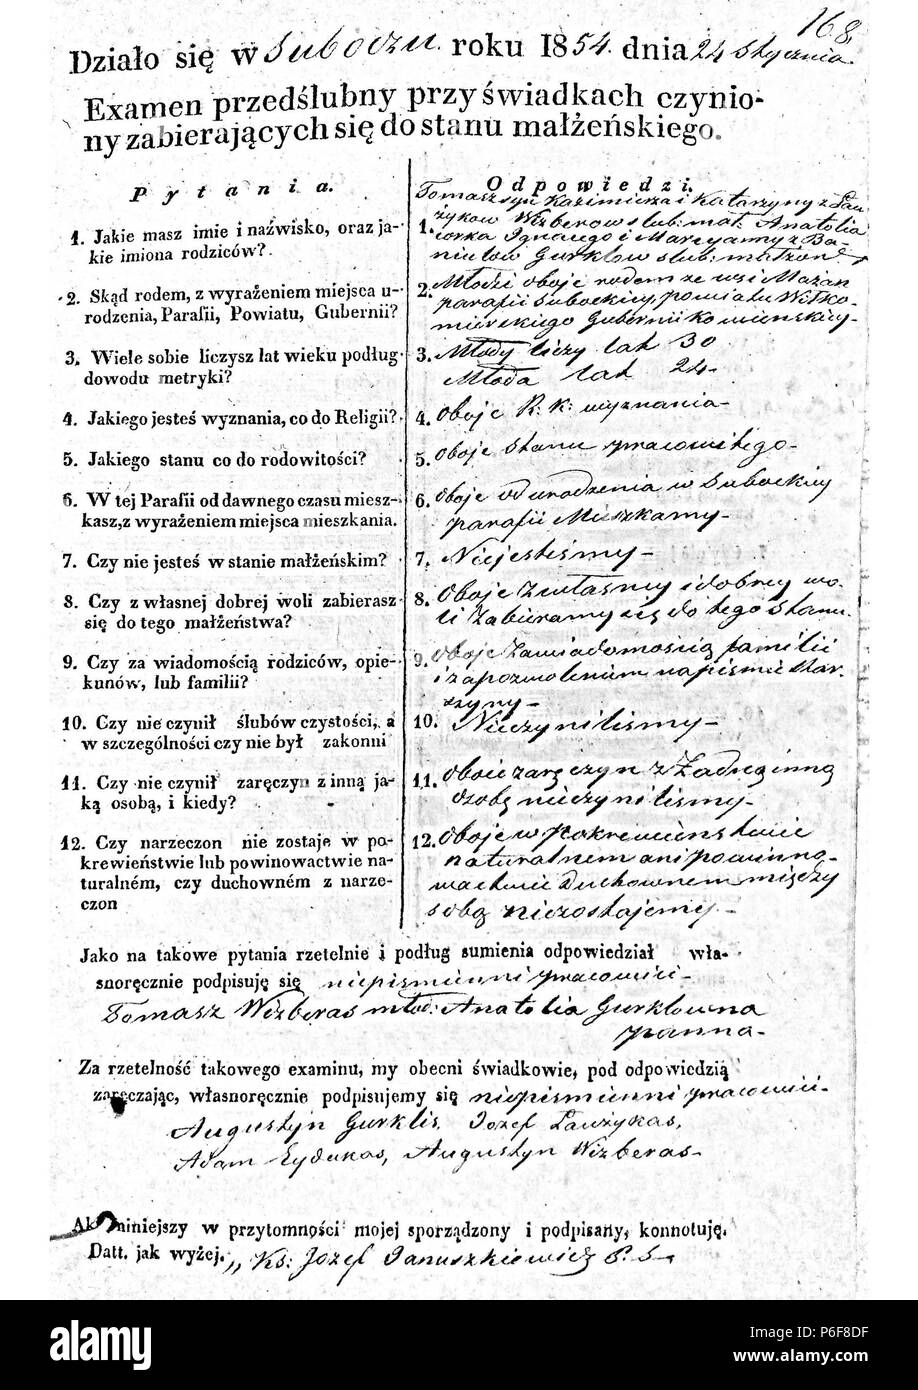 168
Działo się w Suboczu. roku 1854. dnia 24 Stycznia.
Examen przedślubny przy świadkach czynio-
ny zabierających się do stanu małżeńskiego.
Pytania.
1. Jakie masz imie i naźwisko, oraz ja-
kie imiona rodziców?
2. Skąd rodem, z wyrażeniem miejsca u-
rodzenia, Parafii, Powiatu, Gubernii?
3. Wiele sobie liczysz lat wieku podług
dowodu metryki?
4. Jakiego jesteś wyznania, co do Religii?
5. Jakiego stanu co do rodowitości?
6. W tej Parafii od dawnego czasu miesz-
kasz, z wyrażeniem miejsca mieszkania.
7. Czy nie jesteś w stanie małżeńskim?
8. Czy z własnej dobrej woli zabierasz
się do tego małżeństwa?
9. Czy za wiadomością rodziców, opie-
kunów, lub familii?
10. Czy nie czynił ślubów czystości, a
w szczególności czy nie był zakonni
11. Czy nie czynił zaręczyn z inną ja-
ką osobą, i kiedy?
12. Czy narzeczon nie zostaje w po-
krewieństwie lub powinowactwie na-
turalném, czy duchowném z narze-
czon
Odpowiedzi.
Tomasz syn Kazimierza i Katarzyny z Łau-
1. żykow Wizberow slub: mał: Anatolia
corka Ignacego i Maryanny z Ba-
niulow Gurklow slub: małżon
2. Młodzi oboje rodem ze wsi Mażan
parafii Subockiey, powiatu Wiłko-
mierskiego Gubernii Kowienskiey-
3. Młody liczy lat 30
Młoda lat 24-
4. Oboje R: K: wyznania-
5. Oboje Stanu pracowitego-
6. Oboje od urodzenia w Subockiey
parafii Mieszkamy-
7. Niejestesmy-
8. Oboje z własney i dobrey wo-
li zabieramy się do tego Stanu.
9. Oboje zawiadomością familii
i zapozwoleniem napismie star-
szyny-
10. Nieczynilismy-
11. Oboie zaręczyn z żadną inną
osobą nieczynilismy-
12. Oboje w pokrewieństwie
naturalnem ani powinno-
wactwie Duchownem między
sobą niezostajemy-
Jako na takowe pytania rzetelnie i podług sumienia odpowiedział wła-
snoręcznie podpisuję się niepismienni pracowici-
Tomasz Wizberas młod: Anatolia Gurklowna
panna-
Za rzetelność takowego examinu, my obecni świadkowie, pod odpowiedzią
zaręczając, własnoręcznie podpisujemy się niepismienni pracowici-
Augustyn Gurklis, Jozef Łaużykas,
Adam Eydukas, Augustyn Wizberas-
Akt niniejszy w przytomności mojej sporządzony i podpisany, konnotuję.
Datt. jak wyżej. Ks: Jozef Januszkiewicz P. S-
alamy
Image ID: P6F8DF
www.alamy.com